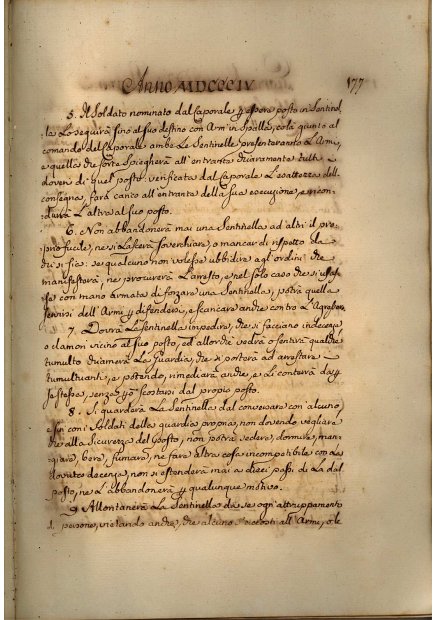 Anno MDCCCIV 177
5. Il Soldato nominato dal Caporale p esser posto in Sentinel-
la Lo seguirà sino al suo destino con Arm' in Spalla, colà giunto al
comando del Caporale ambe Le Sentinelle presenteranno L'Armi,
e quella che sorte spiegherà all'entrante chiaramente tutti i
doveri di quel posto, verificata dal Caporale L'esattezza della
consegna, farà carico all'entrante della sua esecuzione, e ricon-
durrà L'altra al suo posto.
6. Non abbandonerà mai una Sentinella ad altri il pro-
prio fucile, ne si Lascerà soverchiare, o mancar di rispetto da
chi si sia: se qualcuno non volesse ubbidire agl'ordini che
manifesterà, ne procurerà L'arresto, e nel solo caso che si
con mano armata di forzare una Sentinella, potrà quella
servirsi dell'Armi p difendersi, e scaricare anche contro L'Agressor
7. Dovrà La Sentinella impedire, che si facciano indecenze,
o clamori vicino al suo posto, ed allorchè vedrà o sentirà qualche
tumulto chiamerà La Guardia, che si porterà ad arrestare i
tumultuanti, e potendo, rimedierà anche, e Li conterrà da p
se stessa, senza p scostarsi dal proprio posto.
8. Si guarderà La Sentinella dal conversare con alcuno,
e sin con i Soldati della guardia propria, non dovendo vegliare
che alla Sicurezza del Posto, non potrà sedere, dormire, man-
giare, bere, fumare, ne fare altra cosa incompatibile con La
dovuta decenza, non si estenderà mai a dieci passi di La dal
posto, ne L'abbandonerà p qualunque motivo.
9. Allontanerà La Sentinella da se ogn'attruppamento
di persone, vietando anche, che alcuno s'accosti all'Armi, o le